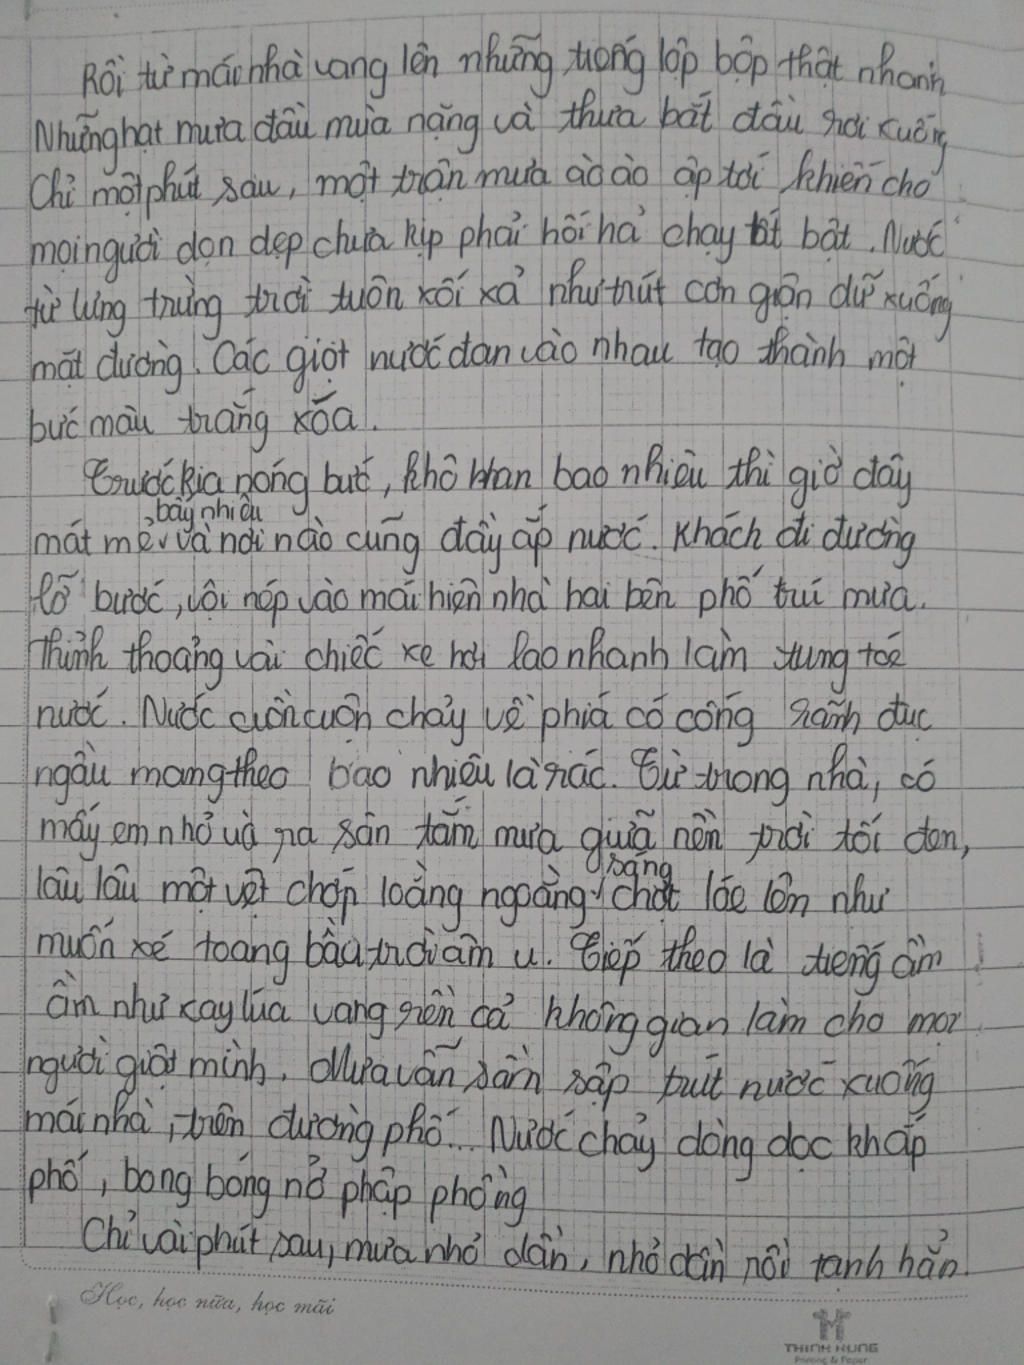 Rồi từ mái nhà vang lên những tiếng lộp bộp thật nhanh
Những hạt mưa đầu mùa nặng và thưa bắt đầu rơi xuống
Chỉ một phút sau, một trận mưa ào ào ập tới khiến cho
mọi người dọn dẹp chưa kịp phải hối hả chạy tất bật. Nước
từ lưng trừng trời tuôn xối xả như trút cơn giận dữ xuống
mặt đường. Các giọt nước đan vào nhau tạo thành một
bức màu trắng xóa.
Trước kia nóng bức, khô khan bao nhiêu thì giờ đây
, bây nhiêu
mát mẻ và nơi nào cũng đầy ắp nước. Khách đi đường
lỡ bước, vội nép vào mái hiên nhà hai bên phố trú mưa.
Thỉnh thoảng vài chiếc xe hơi lao nhanh làm tung toé
nước. Nước cuồn cuộn chảy về phiá có cống rãnh đục
ngầu mang theo bao nhiêu là rác. Từ trong nhà, có
mấy em nhỏ ùa ra sân tắm mưa giữa nền trời tối đen,
sáng
lâu lâu một vệt chớp loằng ngoằng chợt lóe lên như
muốn xé toang bầu trời âm u. Tiếp theo là tiếng ầm
ầm như xay lúa vang rền cả không gian làm cho mọi
người giật mình. Mưa vẫn sầm sập trút nước xuống
mái nhà, trên đường phố... Nước chảy dòng dọc khắp
phố, bong bóng nở phập phồng
Chỉ vài phút sau, mưa nhỏ dần, nhỏ dần rồi tạnh hẳn.
Học, học nữa, học mãi
THINH HUNG
Printing & Paper